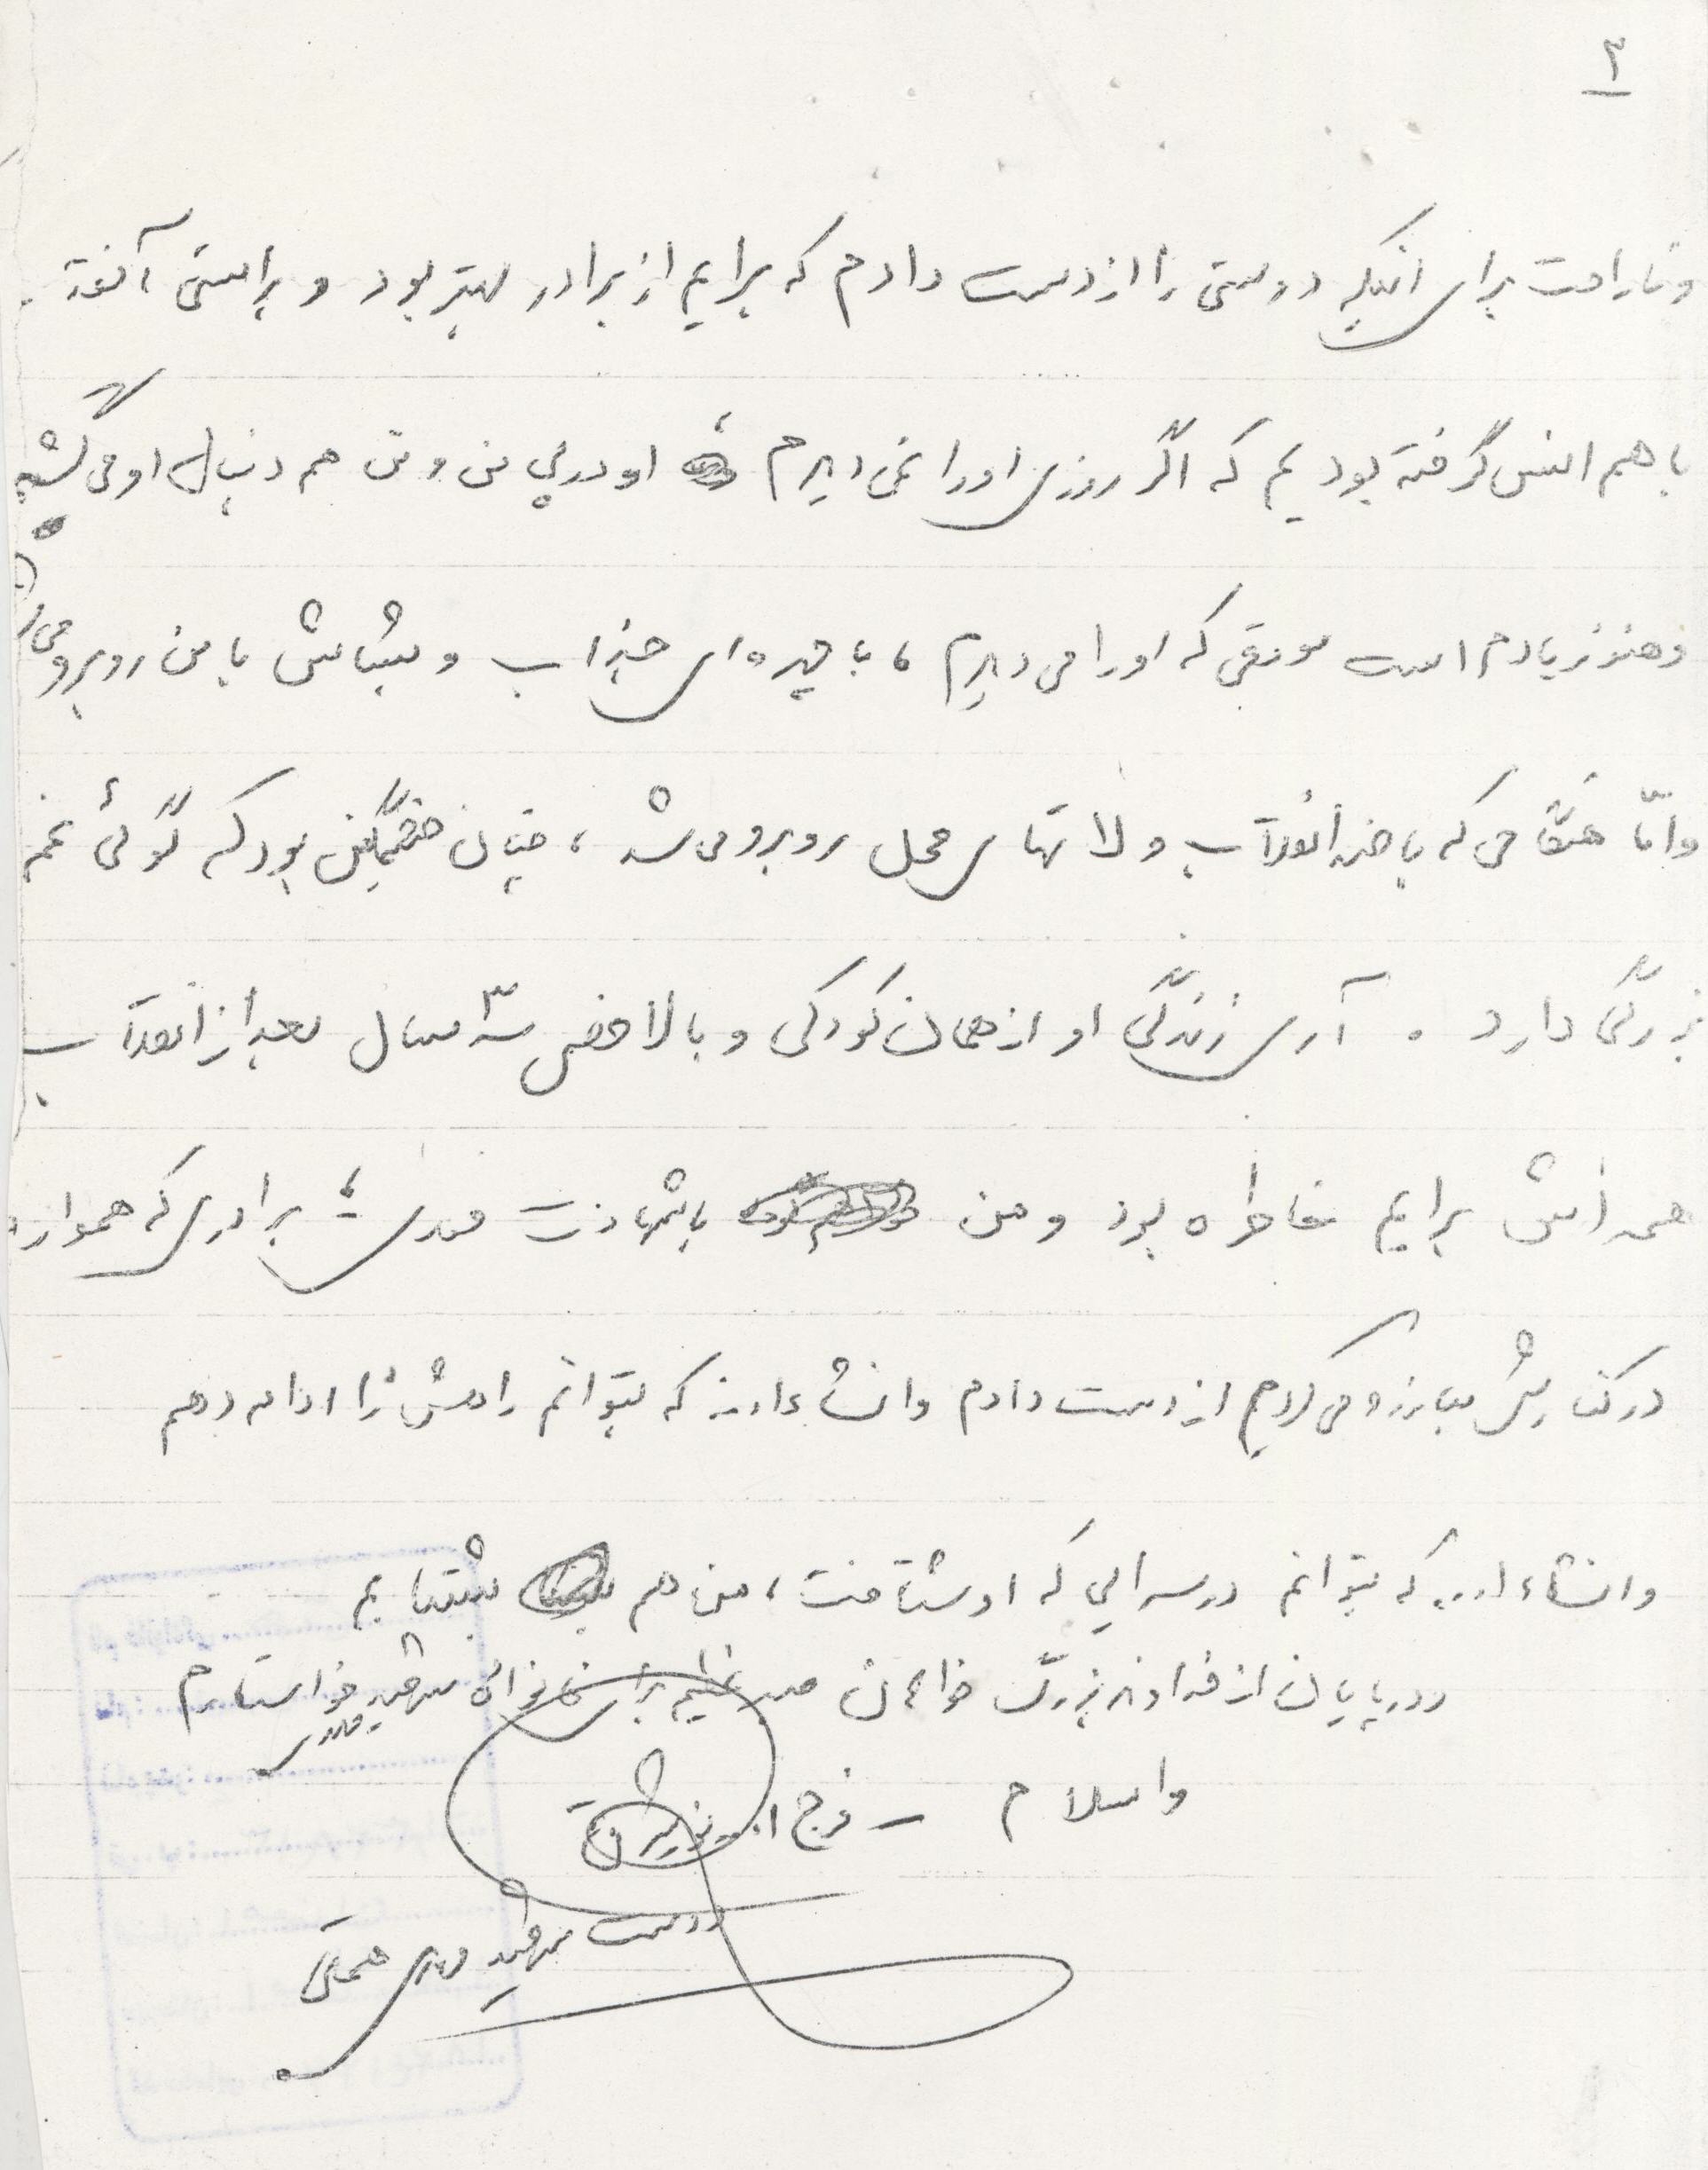 ۳
و ناراحت برای اینکه دوستی را از دست دادم که برایم از برادر بهتر بود و براستی آنقدر
با هم انس گرفته بودیم که اگر روزی او را نمی‌دیدم او در پی من و من هم دنبال او می‌گشتم
و هنوز یادم است موقعی که او را می‌دیدم، با چهره‌ای جذاب و بشاش با من روبرو می
و امّا هنگامی که با ضد انقلاب و لاتهای محل روبرو می‌شد، چنان خشمگین بود که گوئی غم
بزرگی دارد. آری زندگی او از همان کودکی و بالاخص سه سال بعد از انقلاب
همه‌اش برایم خاطره بود و من با شهادت مهدی، برادری که همواره
در کنارش مبارزه می‌کردم از دست دادم و انشاءا... که بتوانم راهش را ادامه دهم
و انشاءا... که بتوانم در سرایی که او شتافت، من هم بشتابم
و در پایان از خداوند بزرگ خواهان صبر عظیم برای خانواده شهید مهدی خواستارم
والسلام – فرج ا...
دوست شهید مهدی همتی